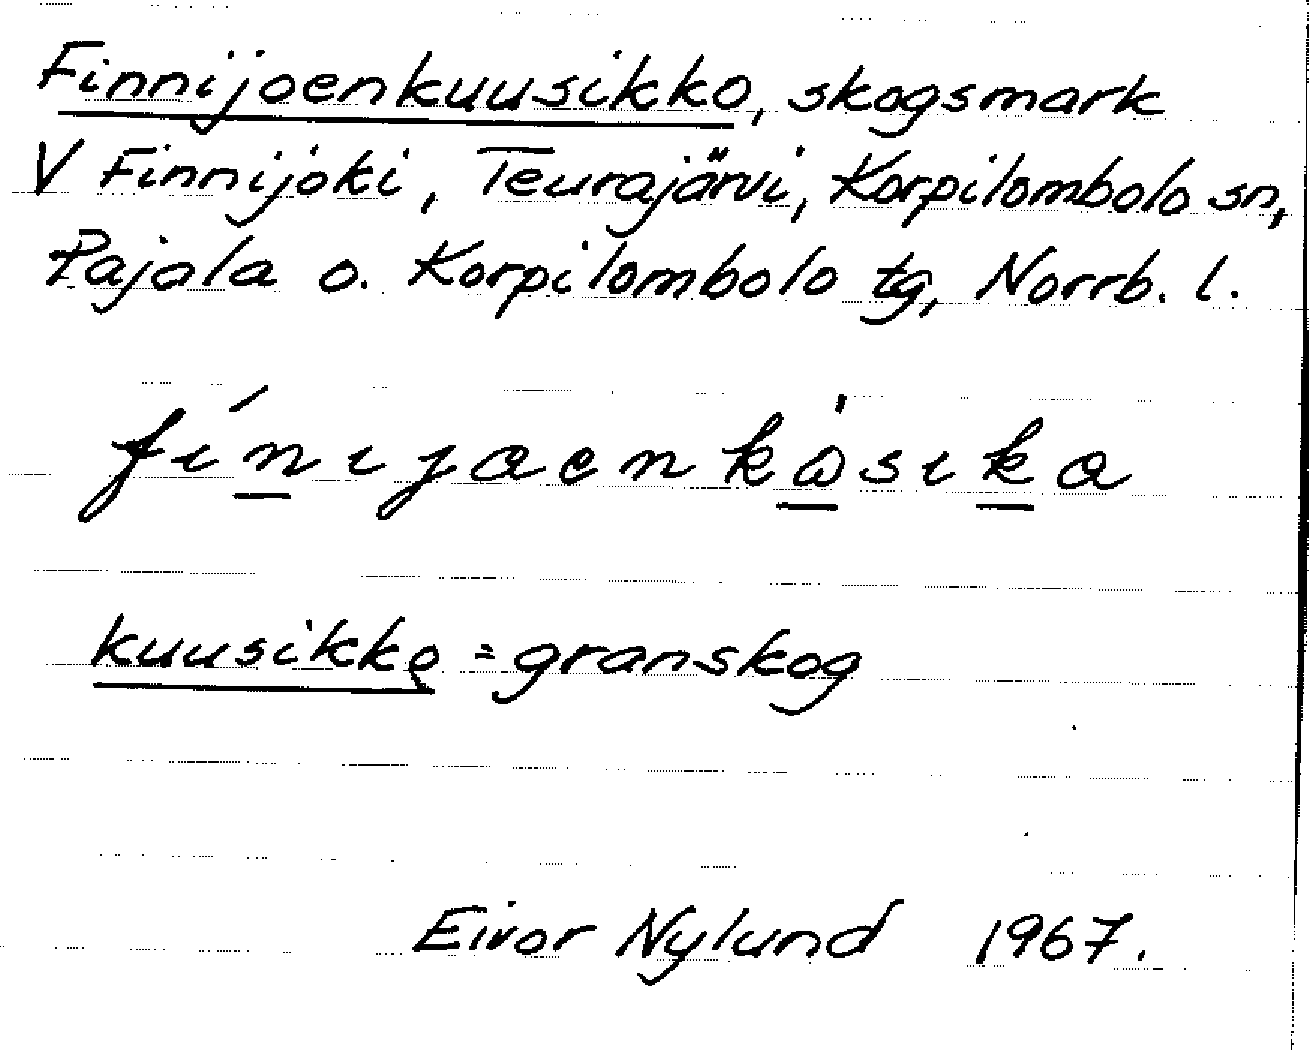 Finnijoenkuusikko, skogsmark
V Finnijoki, Teurajärvi, Korpilombolo sn,
Pajala o. Korpilombolo tg, Norrb. l.
fı́nıȷoenkὼsıko
kuusikko = granskog
Eivor Nylund 1967.